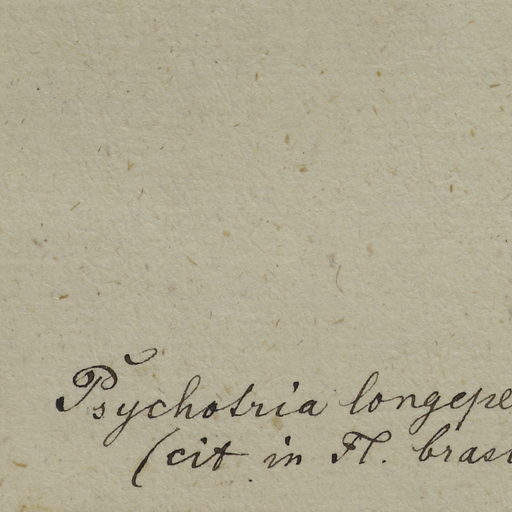 Psychotria longepe
(cit in Fl. bras